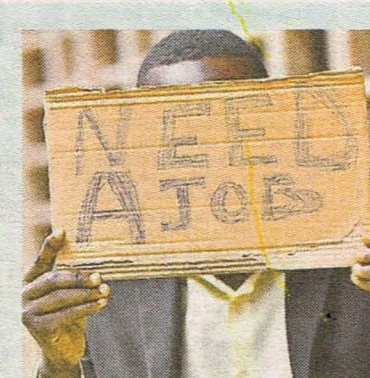 NEED
A JOB